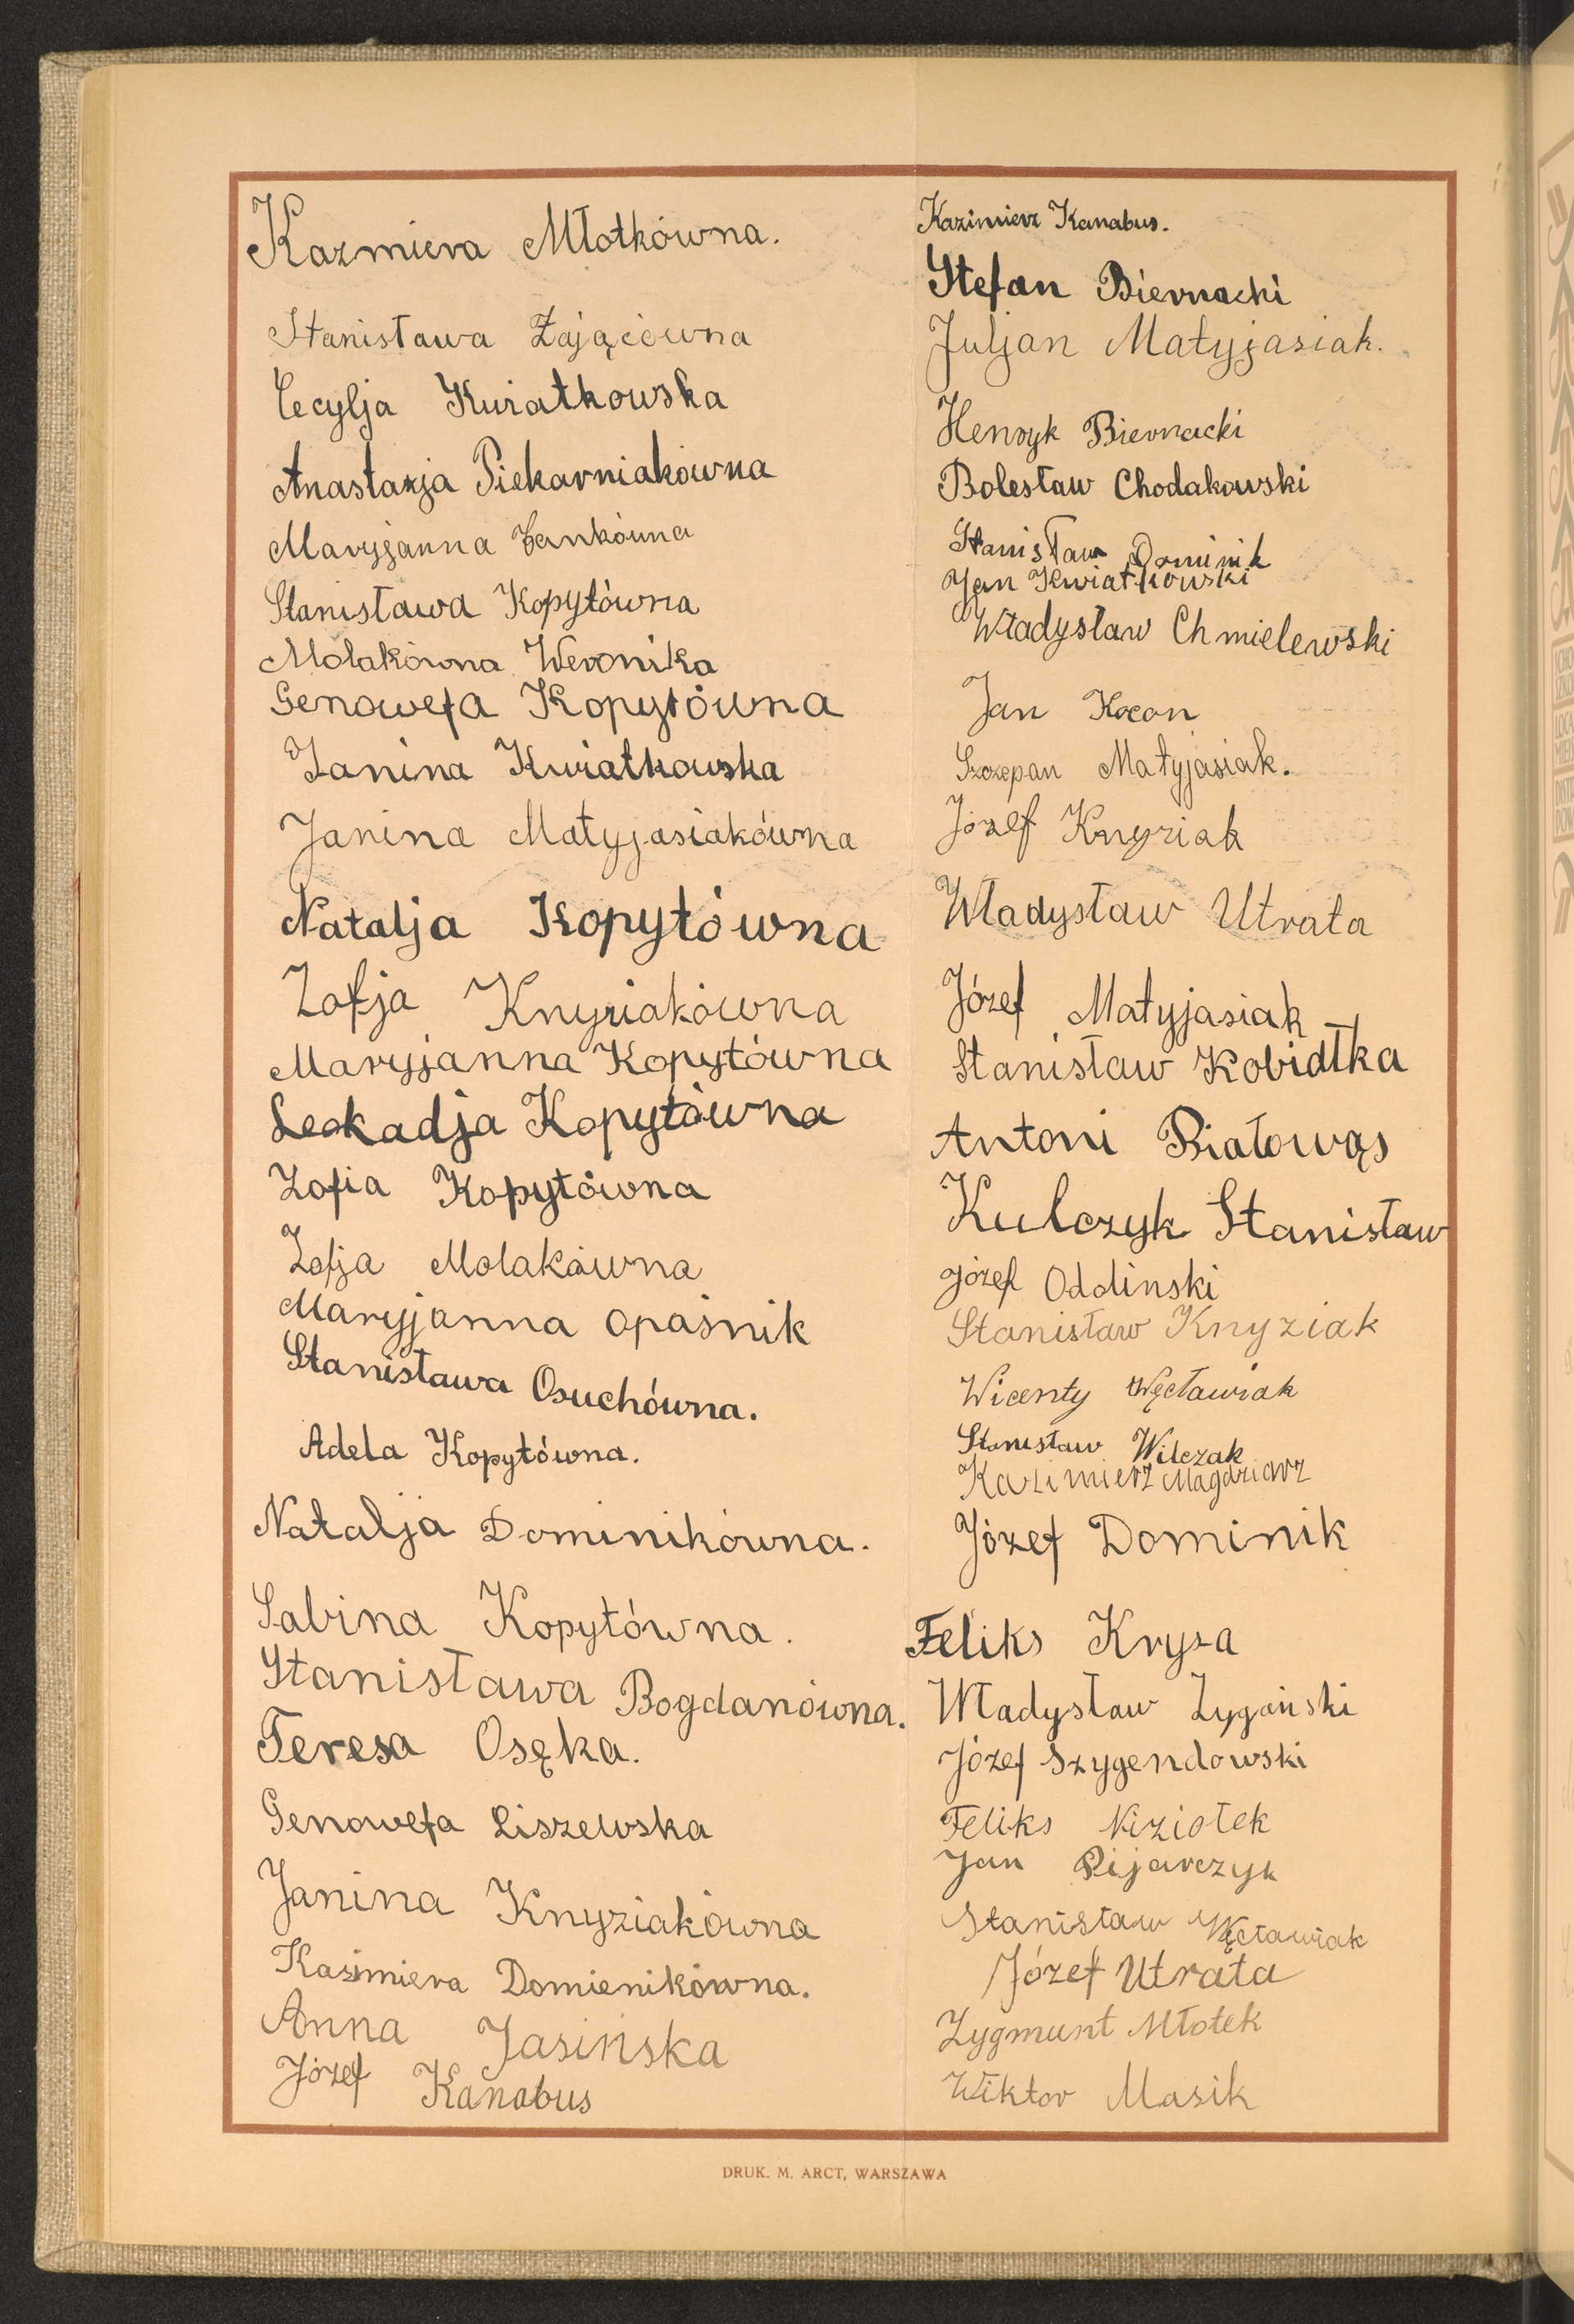 Kazmiera Młotkówna.
Stanisława Zającówna
Cecylja Kwiatkowska
Anastazja Piekarniakówna
Maryjanna Cankówna
Stanisława Kopytówna
Molakówna Weronika
Genowefa Kopytówna
Janina Kwiatkowska
Janina Matyjasiakówna
Natalja Kopytówna
Zofja Knyziakówna
Maryjanna Kopytówna
Leokadja Kopytówna
Zofia Kopytówna
Zofja Molakówna
Maryjanna Opaśnik
Stanisława Osuchówna.
Adela Kopytówna.
Natalja Dominikówna.
Sabina Kopytówna.
Stanisława Bogdanówna.
Teresa Osęka.
Genowefa Liszewska
Janina Knyziakówna
Kazimiera Domienikówna.
Anna Jasińska
Józef Kanabus
Kazimierz Kanabus.
Stefan Biernacki
Juljan Matyjasiak.
Henryk Biernacki
Bolesław Chodakowski
Stanisław Dominik
Jan Kwiatkowski
Władysław Chmielewski
Jan Kocon
Szczepan Matyjasiak.
Józef Knyziak
Władysław Utrata
Józef Matyjasiak
Stanisław Kobidłka
Antoni Białowąs
Kulczyk Stanisław
Józef Oddinski
Stanisław Knyziak
Wicenty Węcławiak
Stanisław Wilczak
Kazimierz Magdziarz
Józef Dominik
Feliks Krysa
Władysław Zygański
Józef Szygendowski
Feliks Niziołek
Jan Pijarczyk
Stanisław Węcławiak
Józef Utrata
Zygmunt Młotek
Wiktor Masik
DRUK. M. ARCT, WARSZAWA